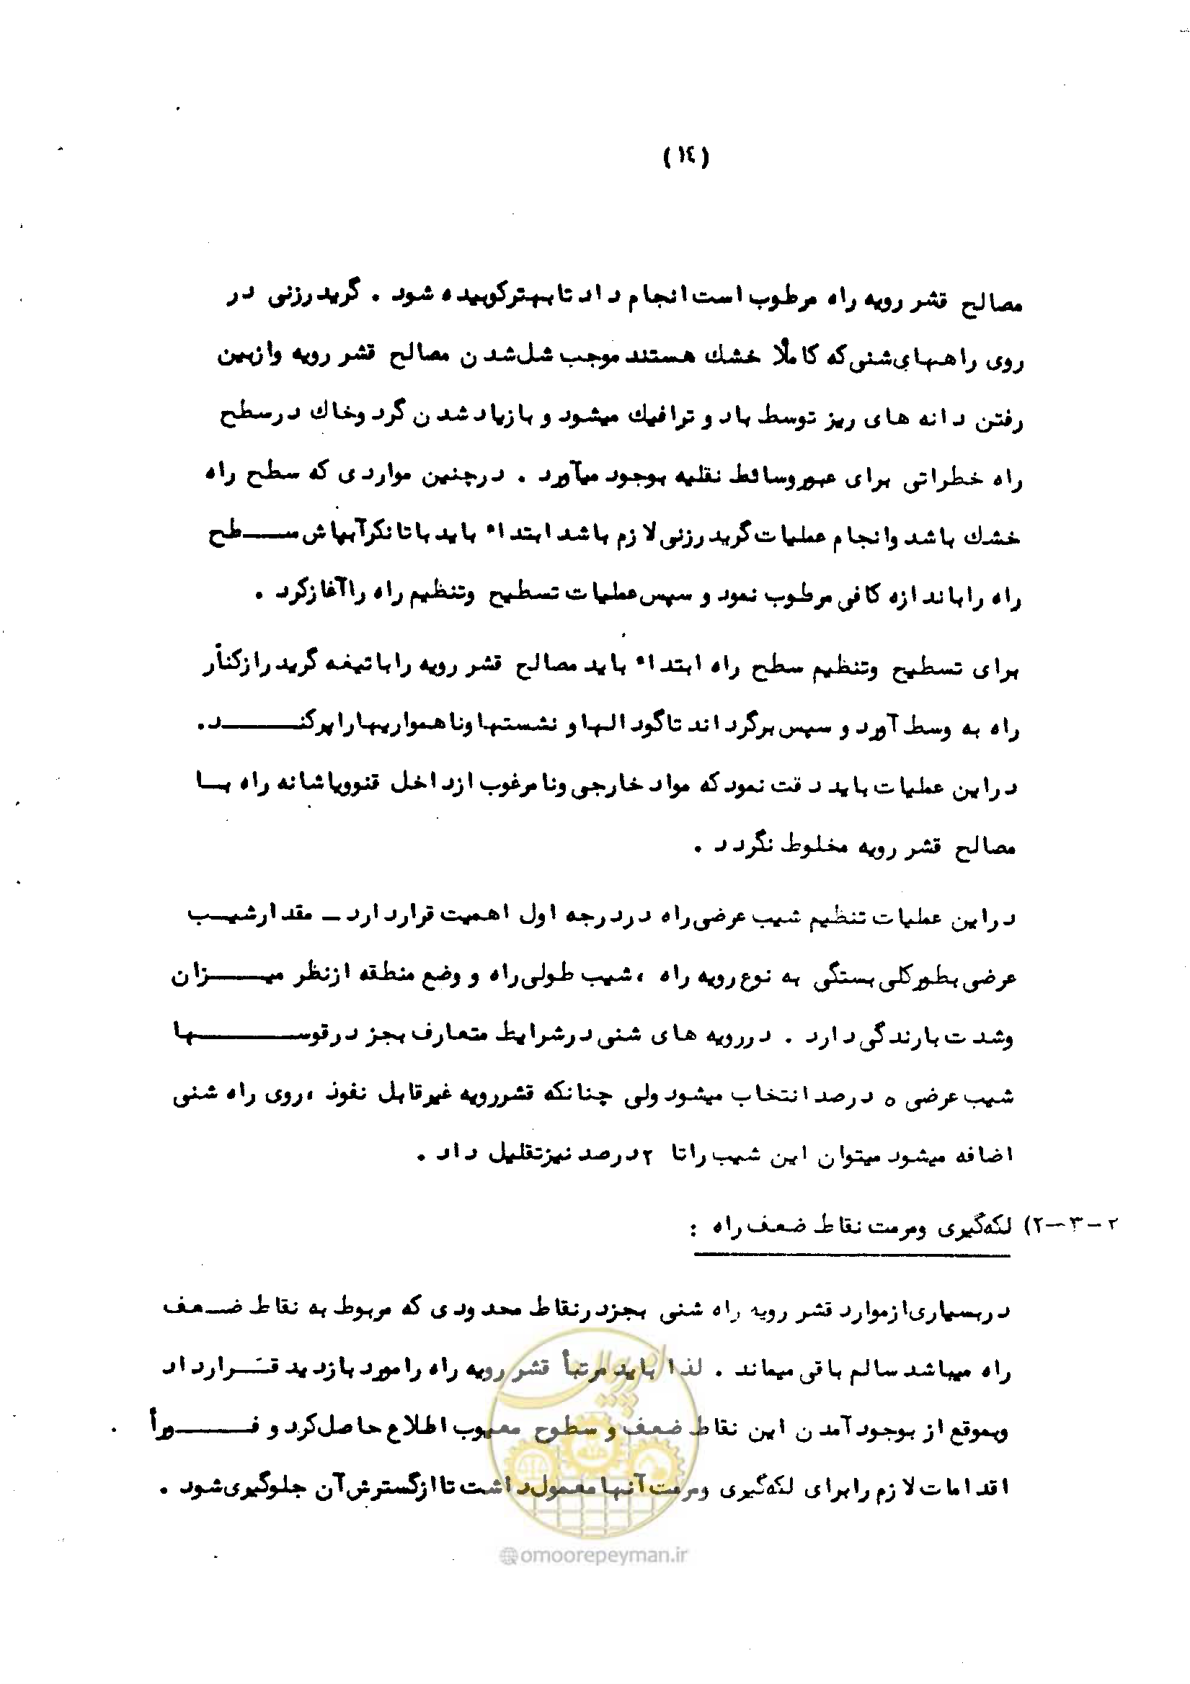 (١٤)
مصالح قشر رویه راه مرطوب است انجام داد تا بهتر کوبیده شود . گریدرزنی در
روی راههای شنی که کاملاً خشک هستند موجب شل شدن مصالح قشر رویه و از بین
رفتن دانه های ریز توسط باد و ترافیک میشود و با زیاد شدن گرد و خاک در سطح
راه خطراتی برای عبور وسائط نقلیه بوجود میآورد . در چنین مواردی که سطح راه
خشک باشد و انجام عملیات گریدرزنی لازم باشد ابتداء باید با تانکر آبپاش سطح
راه را باندازه کافی مرطوب نمود و سپس عملیات تسطیح و تنظیم راه را آغاز کرد .
برای تسطیح و تنظیم سطح راه ابتداء باید مصالح قشر رویه را با تیغه گریدر از کنار
راه به وسط آورد و سپس برگرداند تا گودالها و نشستها و ناهمواریها را پر کند.
در این عملیات باید دقت نمود که مواد خارجی و نامرغوب از داخل قنو و یا شانه راه با
مصالح قشر رویه مخلوط نگردد .
در این عملیات تنظیم شیب عرضی راه در درجه اول اهمیت قرار دارد ـ مقدار شیب
عرضی بطور کلی بستگی به نوع رویه راه ، شیب طولی راه و وضع منطقه از نظر میزان
و شدت بارندگی دارد . در رویه های شنی در شرایط متعارف بجز در قوسها
شیب عرضی ٥ درصد انتخاب میشود ولی چنانکه قشر رویه غیر قابل نفوذ ، روی راه شنی
اضافه میشود میتوان این شیب را تا ٢ درصد نیز تقلیل داد .
٢-٣-٢) لکه‌گیری و مرمت نقاط ضعف راه :
در بسیاری از موارد قشر رویه راه شنی بجز در نقاط محدودی که مربوط به نقاط ضعف
راه میباشد سالم باقی میماند . لذا باید مرتباً قشر رویه راه را مورد بازدید قرار داد
و بموقع از بوجود آمدن این نقاط ضعف و سطوح معیوب اطلاع حاصل کرد و فوراً
اقدامات لازم را برای لکه‌گیری و مرمت آنها معمول داشت تا از گسترش آن جلوگیری شود .
امور پیمان
@omoorepeyman.ir